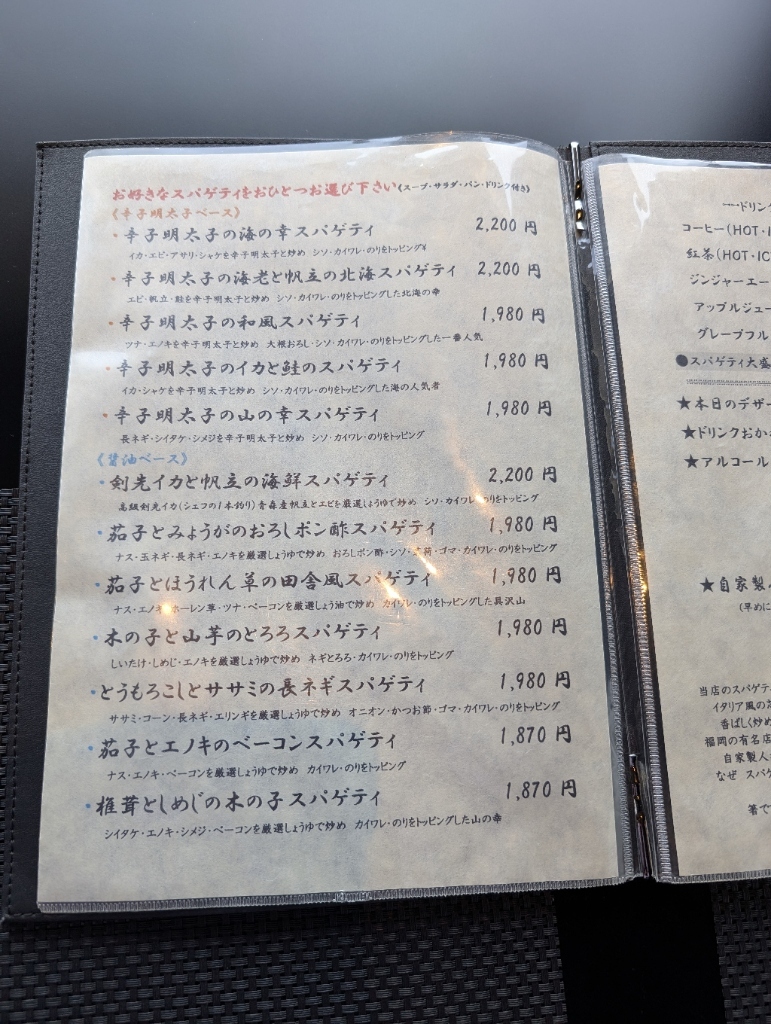 お好きなスパゲティをおひとつお選び下さい(スープ・サラダ・パン・ドリンク付き)
《辛子明太子ベース》
・辛子明太子の海の幸スパゲティ 2,200 円
イカ・エビ・アサリ・シャケを辛子明太子と炒め シソ・カイワレ・のりをトッピング
・辛子明太子の海老と帆立の北海スパゲティ 2,200 円
エビ・帆立・鮭を辛子明太子と炒め シソ・カイワレ・のりをトッピングした北海の幸
・辛子明太子の和風スパゲティ 1,980 円
ツナ・エノキを辛子明太子と炒め 大根おろし・シソ・カイワレ・のりをトッピングした一番人気
・辛子明太子のイカと鮭のスパゲティ 1,980 円
イカ・シャケを辛子明太子と炒め シソ・カイワレ・のりをトッピングした海の人気者
・辛子明太子の山の幸スパゲティ 1,980 円
長ネギ・シイタケ・シメジを辛子明太子と炒め シソ・カイワレ・のりをトッピング
《醤油ベース》
・剣先イカと帆立の海鮮スパゲティ 2,200 円
高級剣先イカ(シェフの1本釣り)青森産帆立とエビを厳選しょうゆで炒め シソ・カイワレ・のりをトッピング
・茄子とみょうがのおろしポン酢スパゲティ 1,980 円
ナス・玉ネギ・長ネギ・エノキを厳選しょうゆで炒め おろしポン酢・シソ・荷・ゴマ・カイワレ・のりをトッピング
・茄子とほうれん草の田舎風スパゲティ 1,980 円
ナス・エノキ ホーレン草・ツナ・ベーコンを厳選しょう油で炒め カイワレ・のりをトッピングした具沢山
・木の子と山芋のとろろスパゲティ 1,980 円
しいたけ・しめじ・エノキを厳選しょうゆで炒め ネギとろろ・カイワレ・のりをトッピング
・とうもろこしとササミの長ネギスパゲティ 1,980 円
ササミ・コーン・長ネギ・エリンギを厳選しょうゆで炒め オニオン・かつお節・ゴマ・カイワレ・のりをトッピング
・茄子とエノキのベーコンスパゲティ 1,870 円
ナス・エノキ・ベーコンを厳選しょうゆで炒め カイワレ・のりをトッピング
・椎茸としめじの木の子スパゲティ 1,870 円
シイタケ・エノキ・シメジ・ベーコンを厳選しょうゆで炒め カイワレ・のりをトッピングした山の幸
ドリン
コーヒー(HOT・I
紅茶(HOT・IC
ジンジャーエー
アップルジュー
グレープフル
●スパゲティ大盛
★本日のデザー
★ドリンクおか
★アルコール
★自家製
(早めに
当店のスパゲテ
イタリア風の
香ばしく炒め
福岡の有名店
自家製人
なぜ スパゲ
箸で